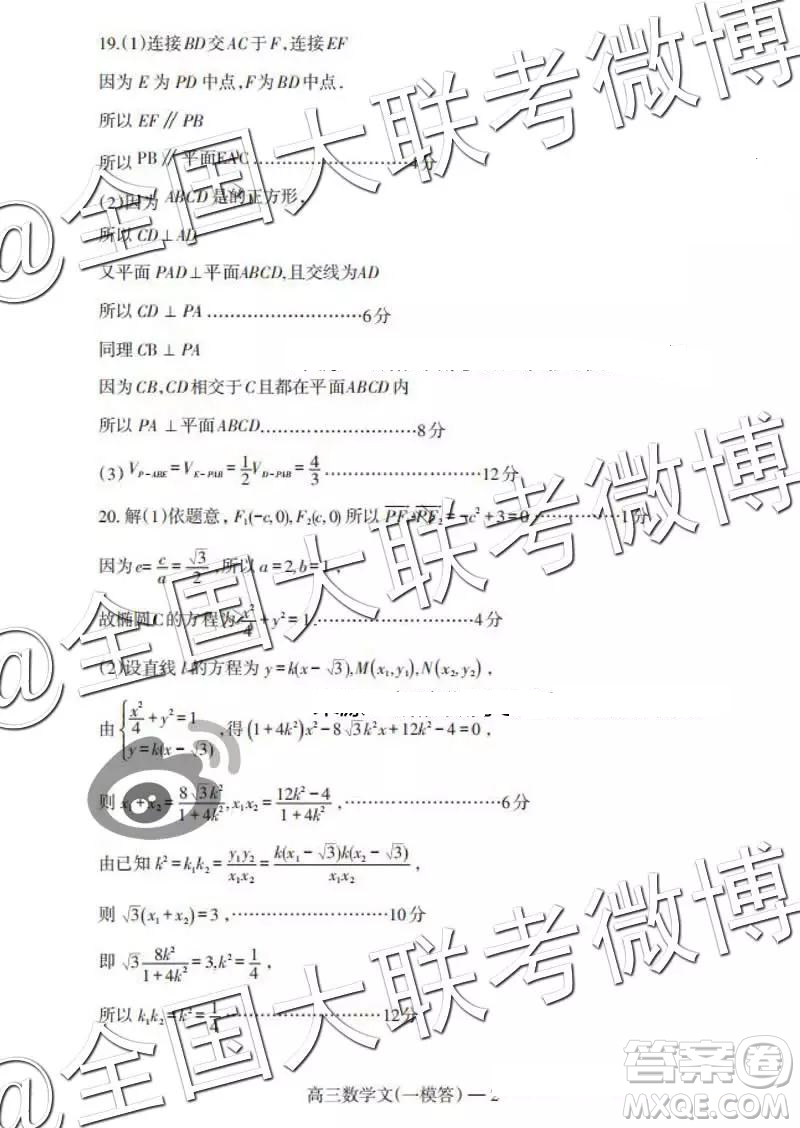 19.(1)连接BD交AC于F,连接EF
因为E为PD中点,F为BD中点.
所以EF∥PB
所以PB∥平面EAC…………………………4分
(2)因为ABCD是的正方形,
所以CD⊥AD
又平面PAD⊥平面ABCD,且交线为AD
所以CD⊥PA…………………………6分
同理CB⊥PA
因为CB,CD相交于C且都在平面ABCD内
所以PA⊥平面ABCD…………………………8分
(3)V_{P-ABE}=V_{E-PAB}=\frac{1}{2}V_{D-PAB}=\frac{4}{3}…………………………12分
20.解(1)依题意,F₁(-c,0),F₂(c,0)所以\overline{PF_1}·\overline{PF_2}=-c²+3=0……………1分
因为e=\frac{c}{a}=\frac{\sqrt{3}}{2},所以a=2,b=1,
故椭圆C的方程为\frac{x²}{4}+y²=1…………………………4分
(2)设直线l的方程为y=k(x-√3),M(x₁,y₁),N(x₂,y₂),
由{\frac{x²}{4}+y²=1
y=k(x-√3),得(1+4k²)x²-8√3k²x+12k²-4=0,
则x₁+x₂=\frac{8√3k²}{1+4k²},x₁x₂=\frac{12k²-4}{1+4k²},…………………………6分
由已知k²=k₁k₂=\frac{y₁y₂}{x₁x₂}=\frac{k(x₁-√3)k(x₂-√3)}{x₁x₂},
则√3(x₁+x₂)=3,…………………………10分
即√3\frac{8k²}{1+4k²}=3,k²=\frac{1}{4},
所以k₁k₂=k²=\frac{1}{4}…………………………12分
高三数学文(一模答)—2
@全国大联考微博
@全国大联考微博
答案卷
MXQE.COM